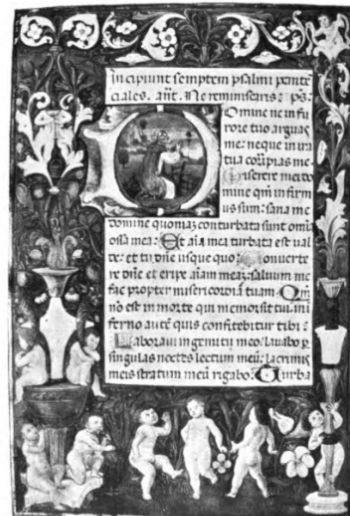 Incipiunt semptem psalmi penitē
ciales. añt. Ne reminiscaris: ps:
Domine ne in fu
rore tuo arguas
me: neque in ira
tua corripias me
Miserere mei do
mine qm̄ infirm
us sum: sana me
domine quoniaz conturbata sunt om̄ia
ossa mea: Et aīa mea turbata est val
de: et tu dn̄e usque quo: Convertere
re dn̄e et eripe aīam meaz: salvum me
fac propter misericordiā tuam Qm̄
nō est in morte qui memor sit tui: in i
ferno autē quis confitebitur tibi:
Laboravi in gemitu meo: lavabo p
singulas noctes lectum meū: lacrimis
meis stratum meū rigabo: Turba